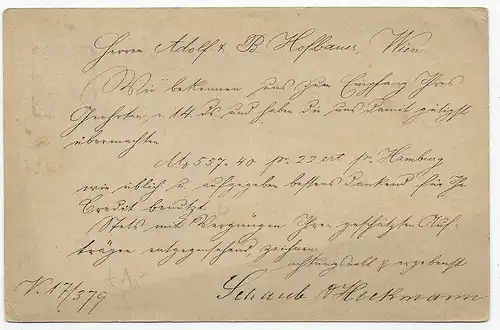 Herren Adolf & B. Hofbauer, Wien
Wir bekennen uns zum Empfang Ihres
Geehrten v. 14. ds. und haben die uns damit gütigst
übermachten
M 557.40 pr 22 crt pr. Hamburg
wie üblich u. aufgegeben bestens dankend für Ihr
Credit benutzt.
Stets mit Vergnügen Ihren geschätzten Auf-
trägen entgegensehend zeichnen
achtungsvoll & ergebenst
Schaub & Hoekmann
V. 17/379